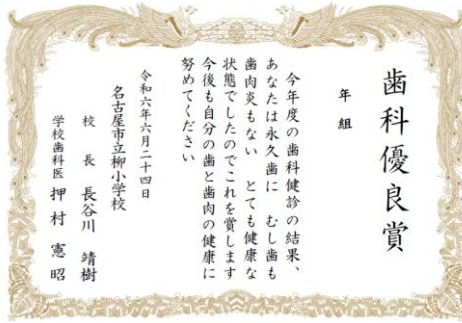 歯科優良賞
年 組
今年度の歯科健診の結果、
あなたは永久歯に むし歯も
歯肉炎もない とても健康な
状態でしたのでこれを賞します
今後も自分の歯と歯肉の健康に
努めてください
令和六年六月二十四日
名古屋市立柳小学校
校 長 長谷川 靖樹
学校歯科医 押村 憲昭